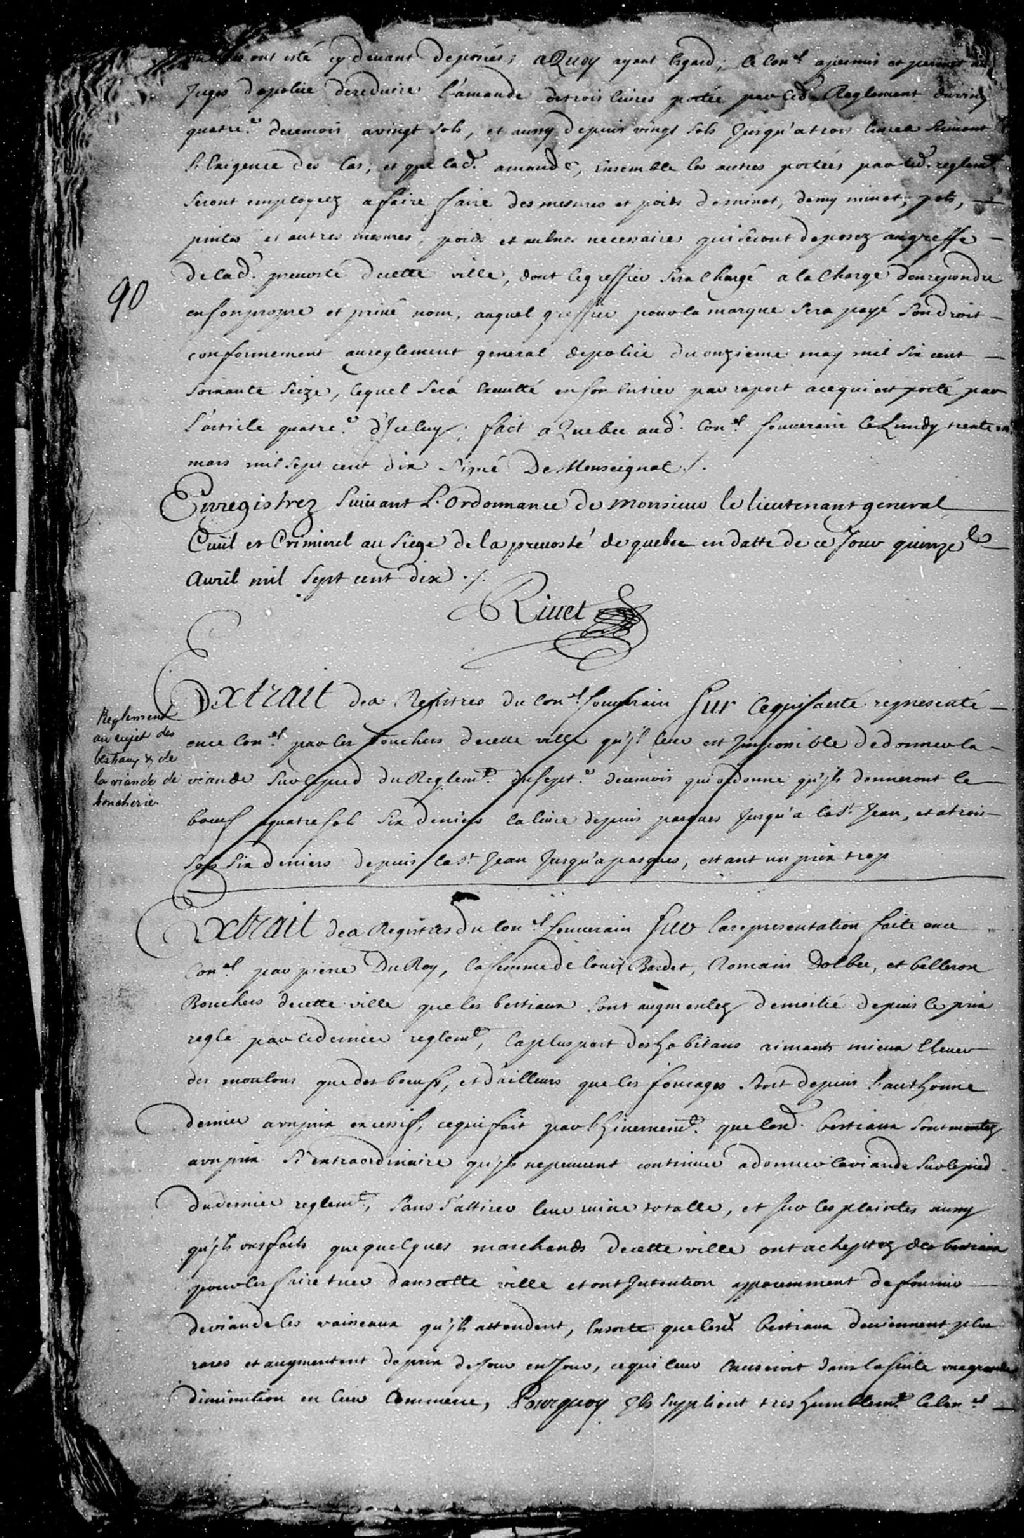 ont esté cy devant deposéés, aQuoy ayant Egard; Le Con.el a permis et permet au
Juges de police de reduire l'amande de trois livres portée par led. Reglement du vingt
quatre.e de ce mois a vingt sols, et aussy depuis vingt sols Jusqu'a trois livres suivant
l'Exigence des Cas, et que lad. amande, ensemble les autres portées par led. reglem.t
seront employez a faire faire des mesures et poids de minot, demy minot, pots, —
pintes et autres mesures, poids et aulnes necessaires qui seront deposez au greffe —
de lad. prevosté de cette ville, dont le greffier sera Chargé a la Charge d'en repondre
90
en son propre et privé nom, auquel greffier pour la marque sera payé son droit —
conformement au reglement general de police du onzieme may mil six cent —
soixante seize, lequel sera Executé en son entier par raport a ce qui est porté par
l'article quatre.e d'Iceluy, fait a Quebec aud. Con.el souverain le Lundy trente un
mars mil sept cent dix signé De Monseignat ./.
Enregistrez suivant L'Ordonnance de Monsieur le lieutenant general
Civil et Criminel au siege de la prevosté de quebec en datte de ce Jour quinze le
Avril mil sept cent dix ./.
Rivet
Extrait des Registres du Con.el souverain Sur ce qui a esté representé —
Reglement
au sujet des
bestiaux & de
la viande de
boucherie
en ce Con.el par les Bouchers de cette ville qu'Jls leur est Jmpossible de donner la —
viande sur le pied du Reglem.t du sept.e de ce mois qui ordonne qu'Jls donneront le
boeuf a quatre sols six deniers la livre depuis pasques Jusqu'a la St Jean, et a trois
sols six deniers depuis la St Jean Jusqu'a pasques, estant un prix trop
Extrait des Registres du Con.el souverain Sur la representation faite en ce
Con.el par pierre Du Roy, la femme de Louis Bardet, Romain Dolbec, et belleron
Bouchers de cette ville que les bestiaux sont augmentez de moitié depuis le prix
reglé par le dernier reglem.t, la plus part des habitans aimants mieux Elever
des moutons que des boeufs, et d'ailleurs que les fourages sont depuis l'authonne
dernier a un prix excessif, ce qui fait par l'hivernem.t que lesd. bestiaux sont montez
a un prix si extraordinaire qu'Jls ne peuvent continuer a donner la viande sur le pied
du dernier reglem.t, sans s'attirer leur ruine totalle, et sur les plaintes aussy
qu'Jls ont faits que quelques marchands de cette ville ont acheptez des bestiaux
pour les faire tuer dans cette ville et ont Jntention apparemment de fournir —
de viande les vaisseaux qu'Jls attendent, Ensorte que lesd. bestiaux deviennent plus
rares et augmentent de prix de Jour en Jour, ce qui leur Causeroit dans la suite une grande
diminution en leur Commerce, Pourquoy Jls supplient tres humblem.t le Con.el —